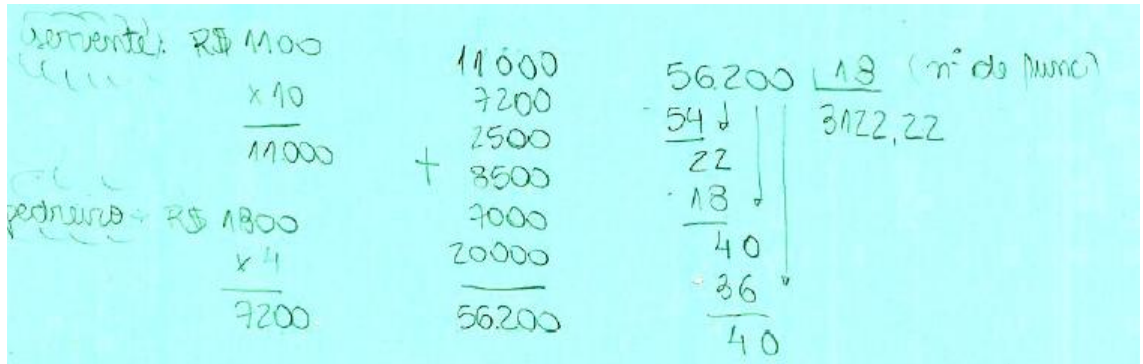 servente: R$ 1100
x 10
11.000
pedreiro - R$ 1800
x 4
7200
11000
7200
2500
+ 8500
7000
20000
56.200
56.200 18 (nº de func)
3122,22
- 54
22
- 18
40
- 36
40